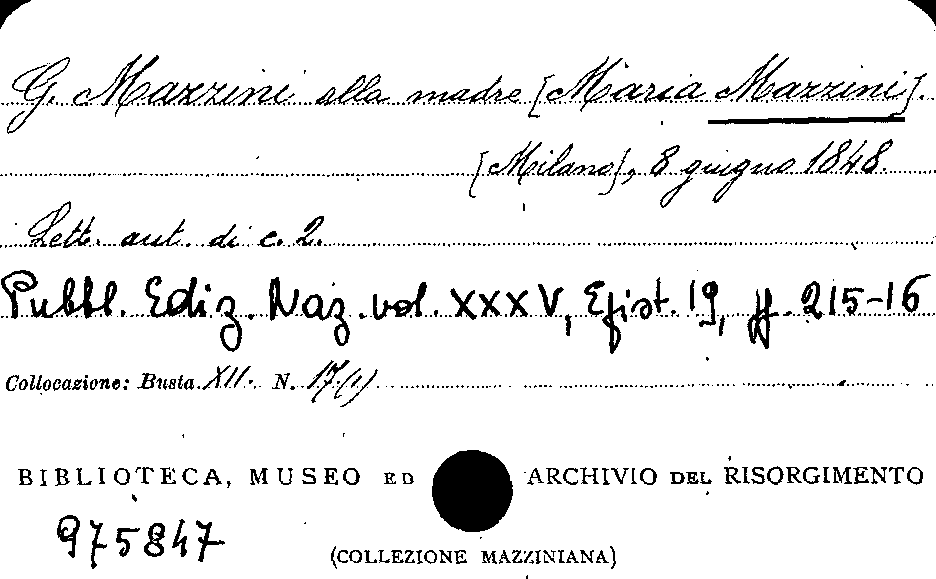 G. Mazzini alla madre [Maria Mazzini].
[Milano], 8 giugno 1848.
Lett. aut. di c. 2.
Pubbl. Ediz. Naz. vol. XXXV, Epist. 19, pp. 215-16
Collocazione: Busta XII. N. 17.(1)
BIBLIOTECA, MUSEO ED ARCHIVIO DEL RISORGIMENTO
975847
(COLLEZIONE MAZZINIANA)